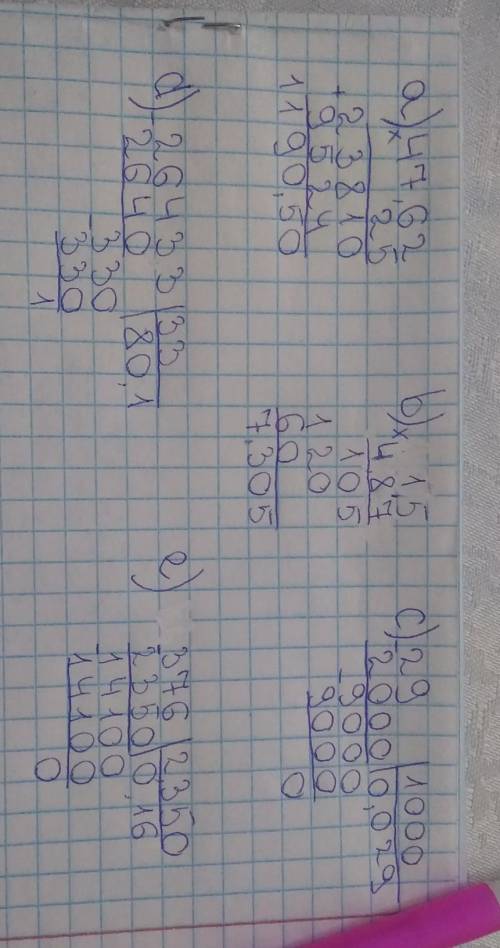 a) × 47,62
25
+ 23810
9524
1190,50
b) × 1,5
487
105
120
60
7,305
c) - 29 | 1000
2000 | 0,029
- 9000
9000
0
d) - 26433 | 33
2640 | 80,1
- 330
330
1
e) - 376 | 2350
2350 | 0,16
- 14100
14100
0